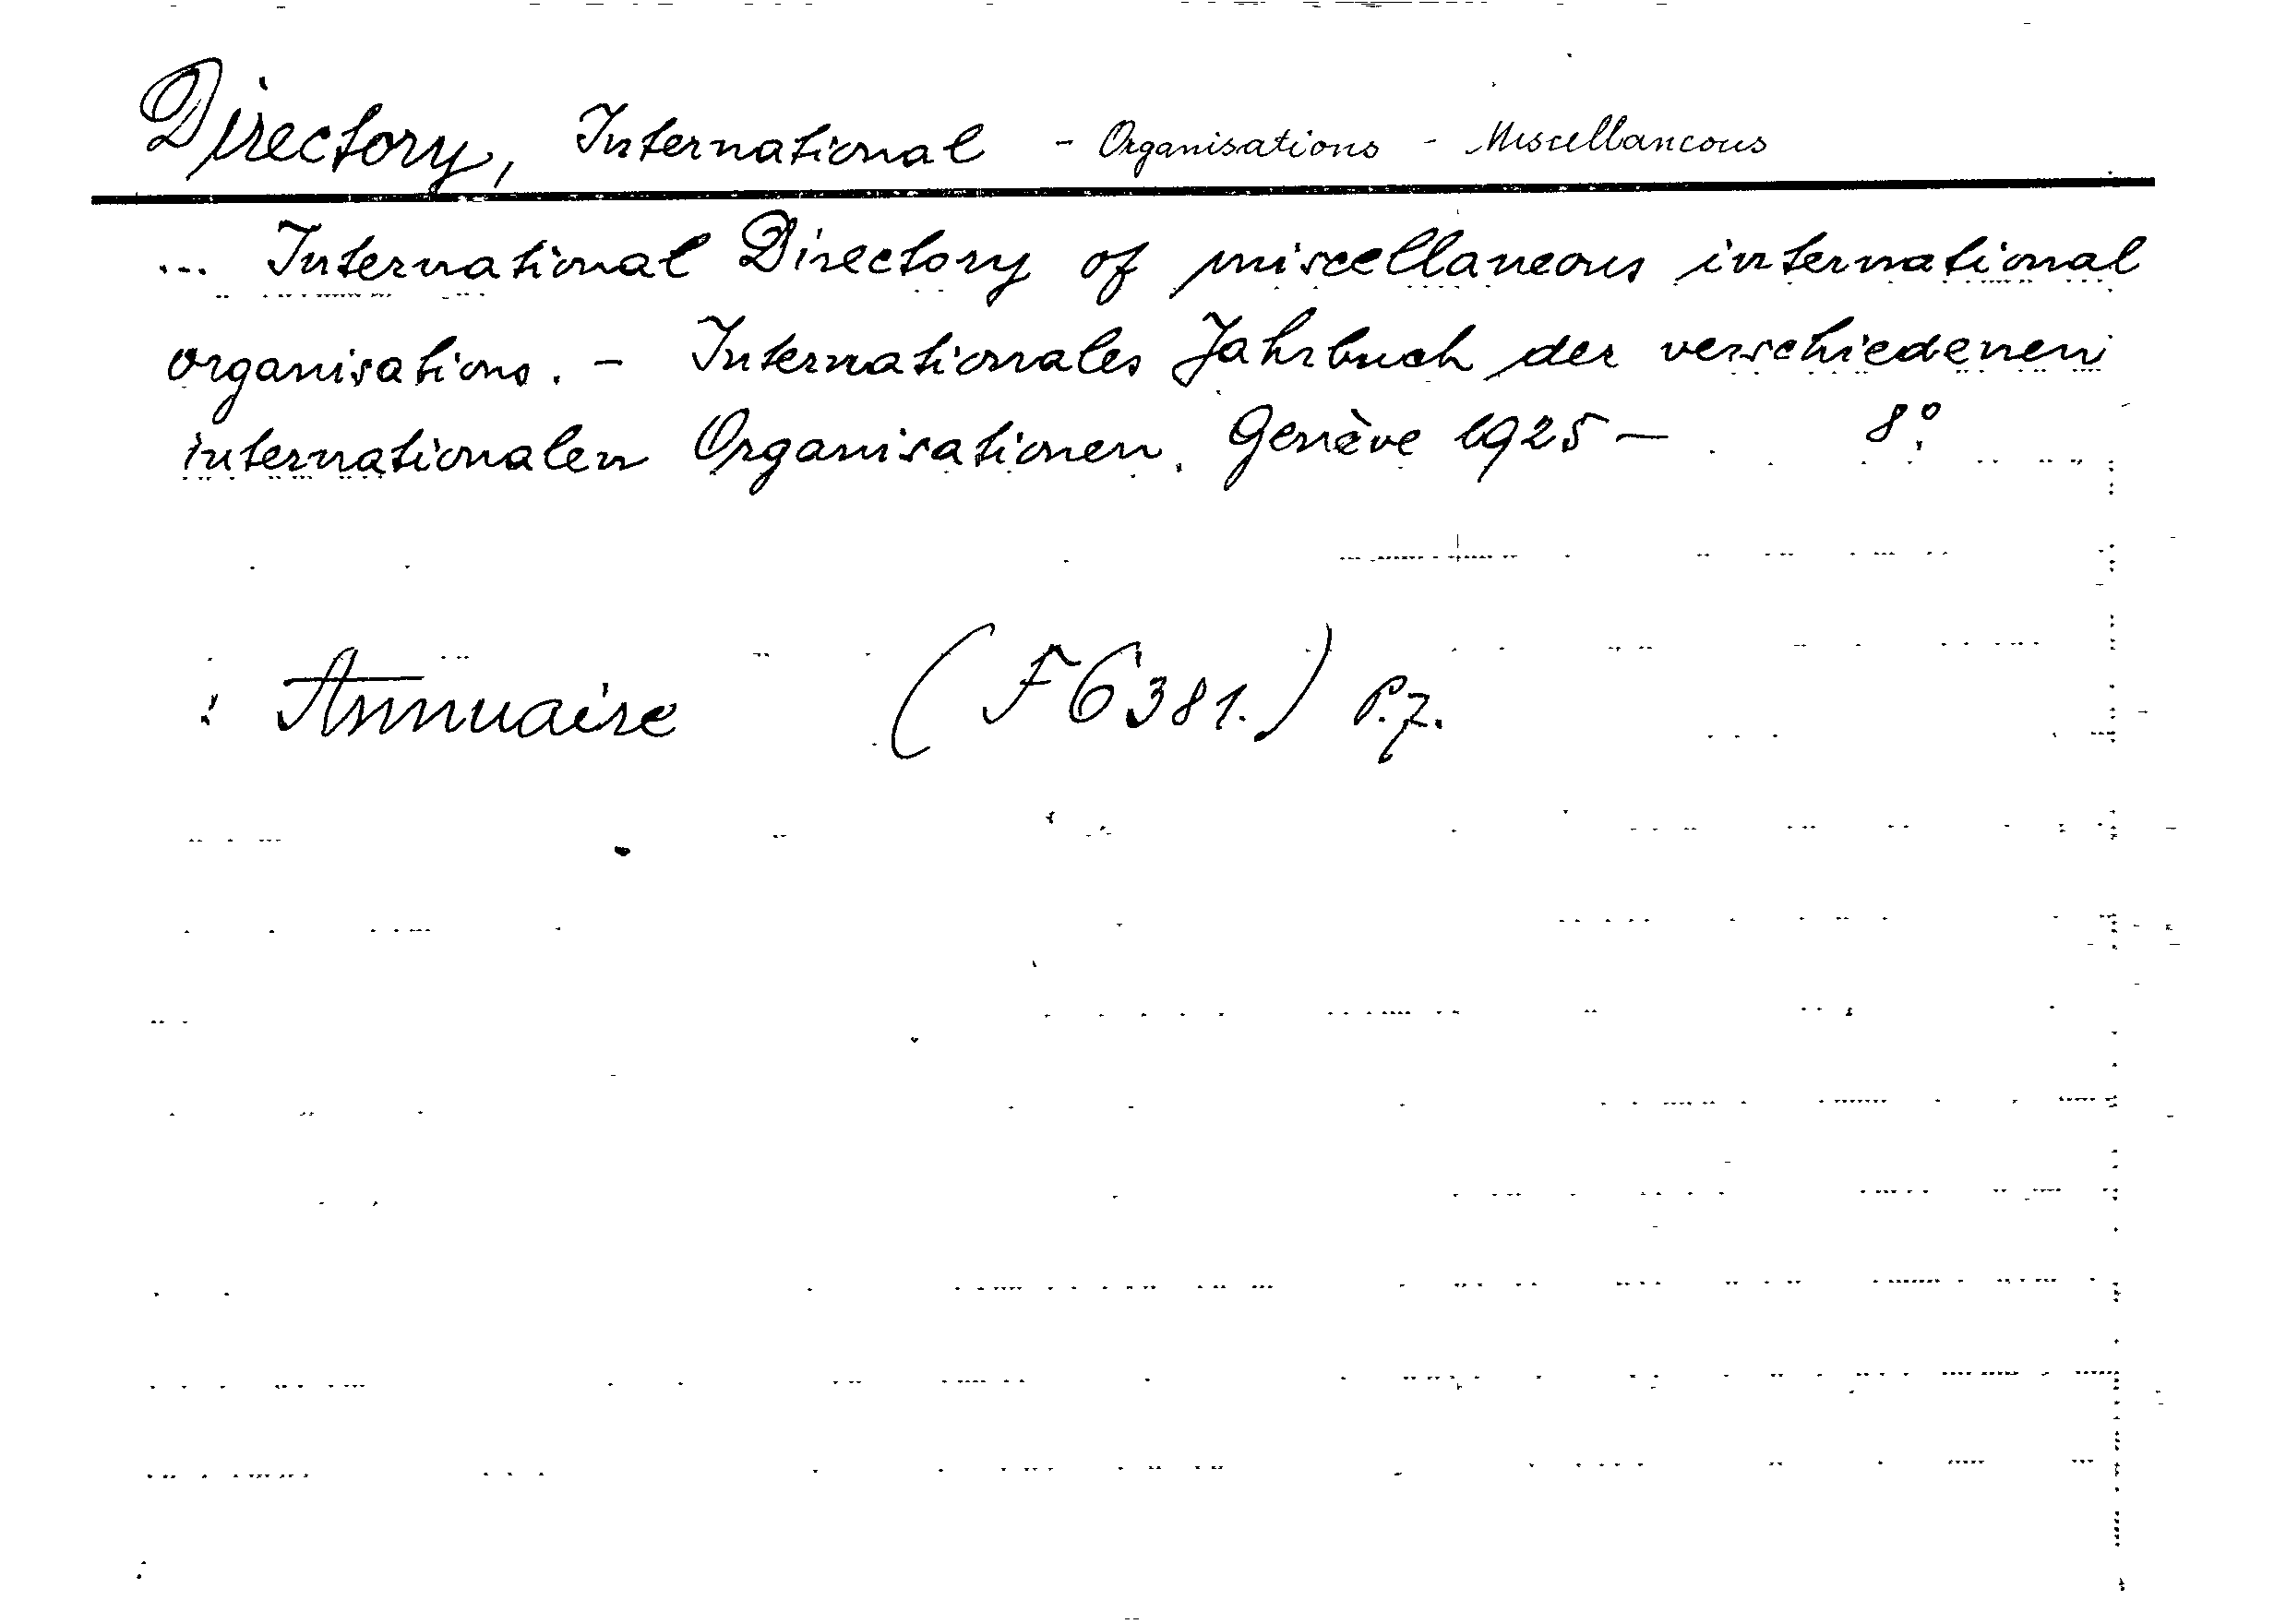 Directory, International - Organisations - Miscellaneous
... International Directory of miscellaneous international
organisations. - Internationales Jahrbuch der verschiedenen
internationalen Organisationen. Genève 1925 - 8º.
: Annuaire (F6381.) P.7.